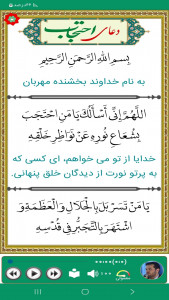 دعای احتجاب
بِسْمِ اللّٰهِ الرَّحْمٰنِ الرَّحِيمِ
به نام خداوند بخشنده مهربان
اللّٰهُمَّ إِنِّي أَسْأَلُكَ يَا مَنِ احْتَجَبَ
بِشُعَاعِ نُورِهِ عَنْ نَوَاظِرِ خَلْقِهِ
خدایا از تو می خواهم، ای کسی که
به پرتو نورت از دیدگان خلق پنهانی.
يَا مَنْ تَسَرْبَلَ بِالْجَلَالِ وَ الْعَظَمَةِ وَ
اشْتَهَرَ بِالتَّجَبُّرِ فِي قُدْسِهِ